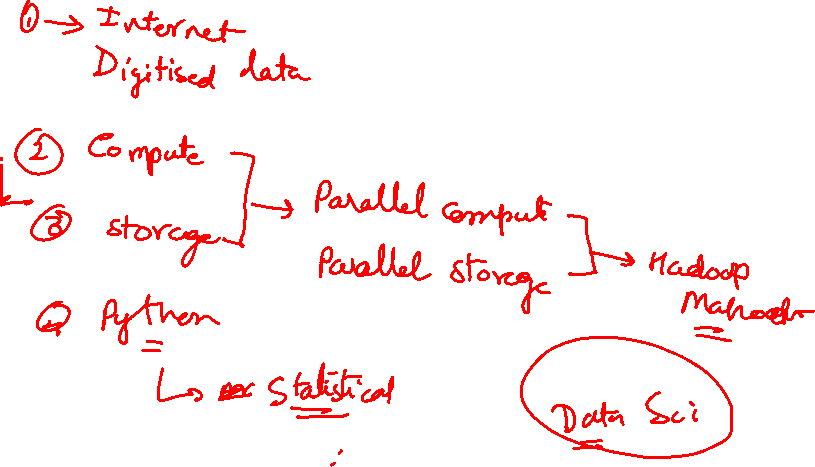 ① → Internet
Digitised data
② Compute
③ storage
→ Parallel compute
Parallel storage
→ Hadoop
Mahout
Python
↳ Statistical
Data Sci